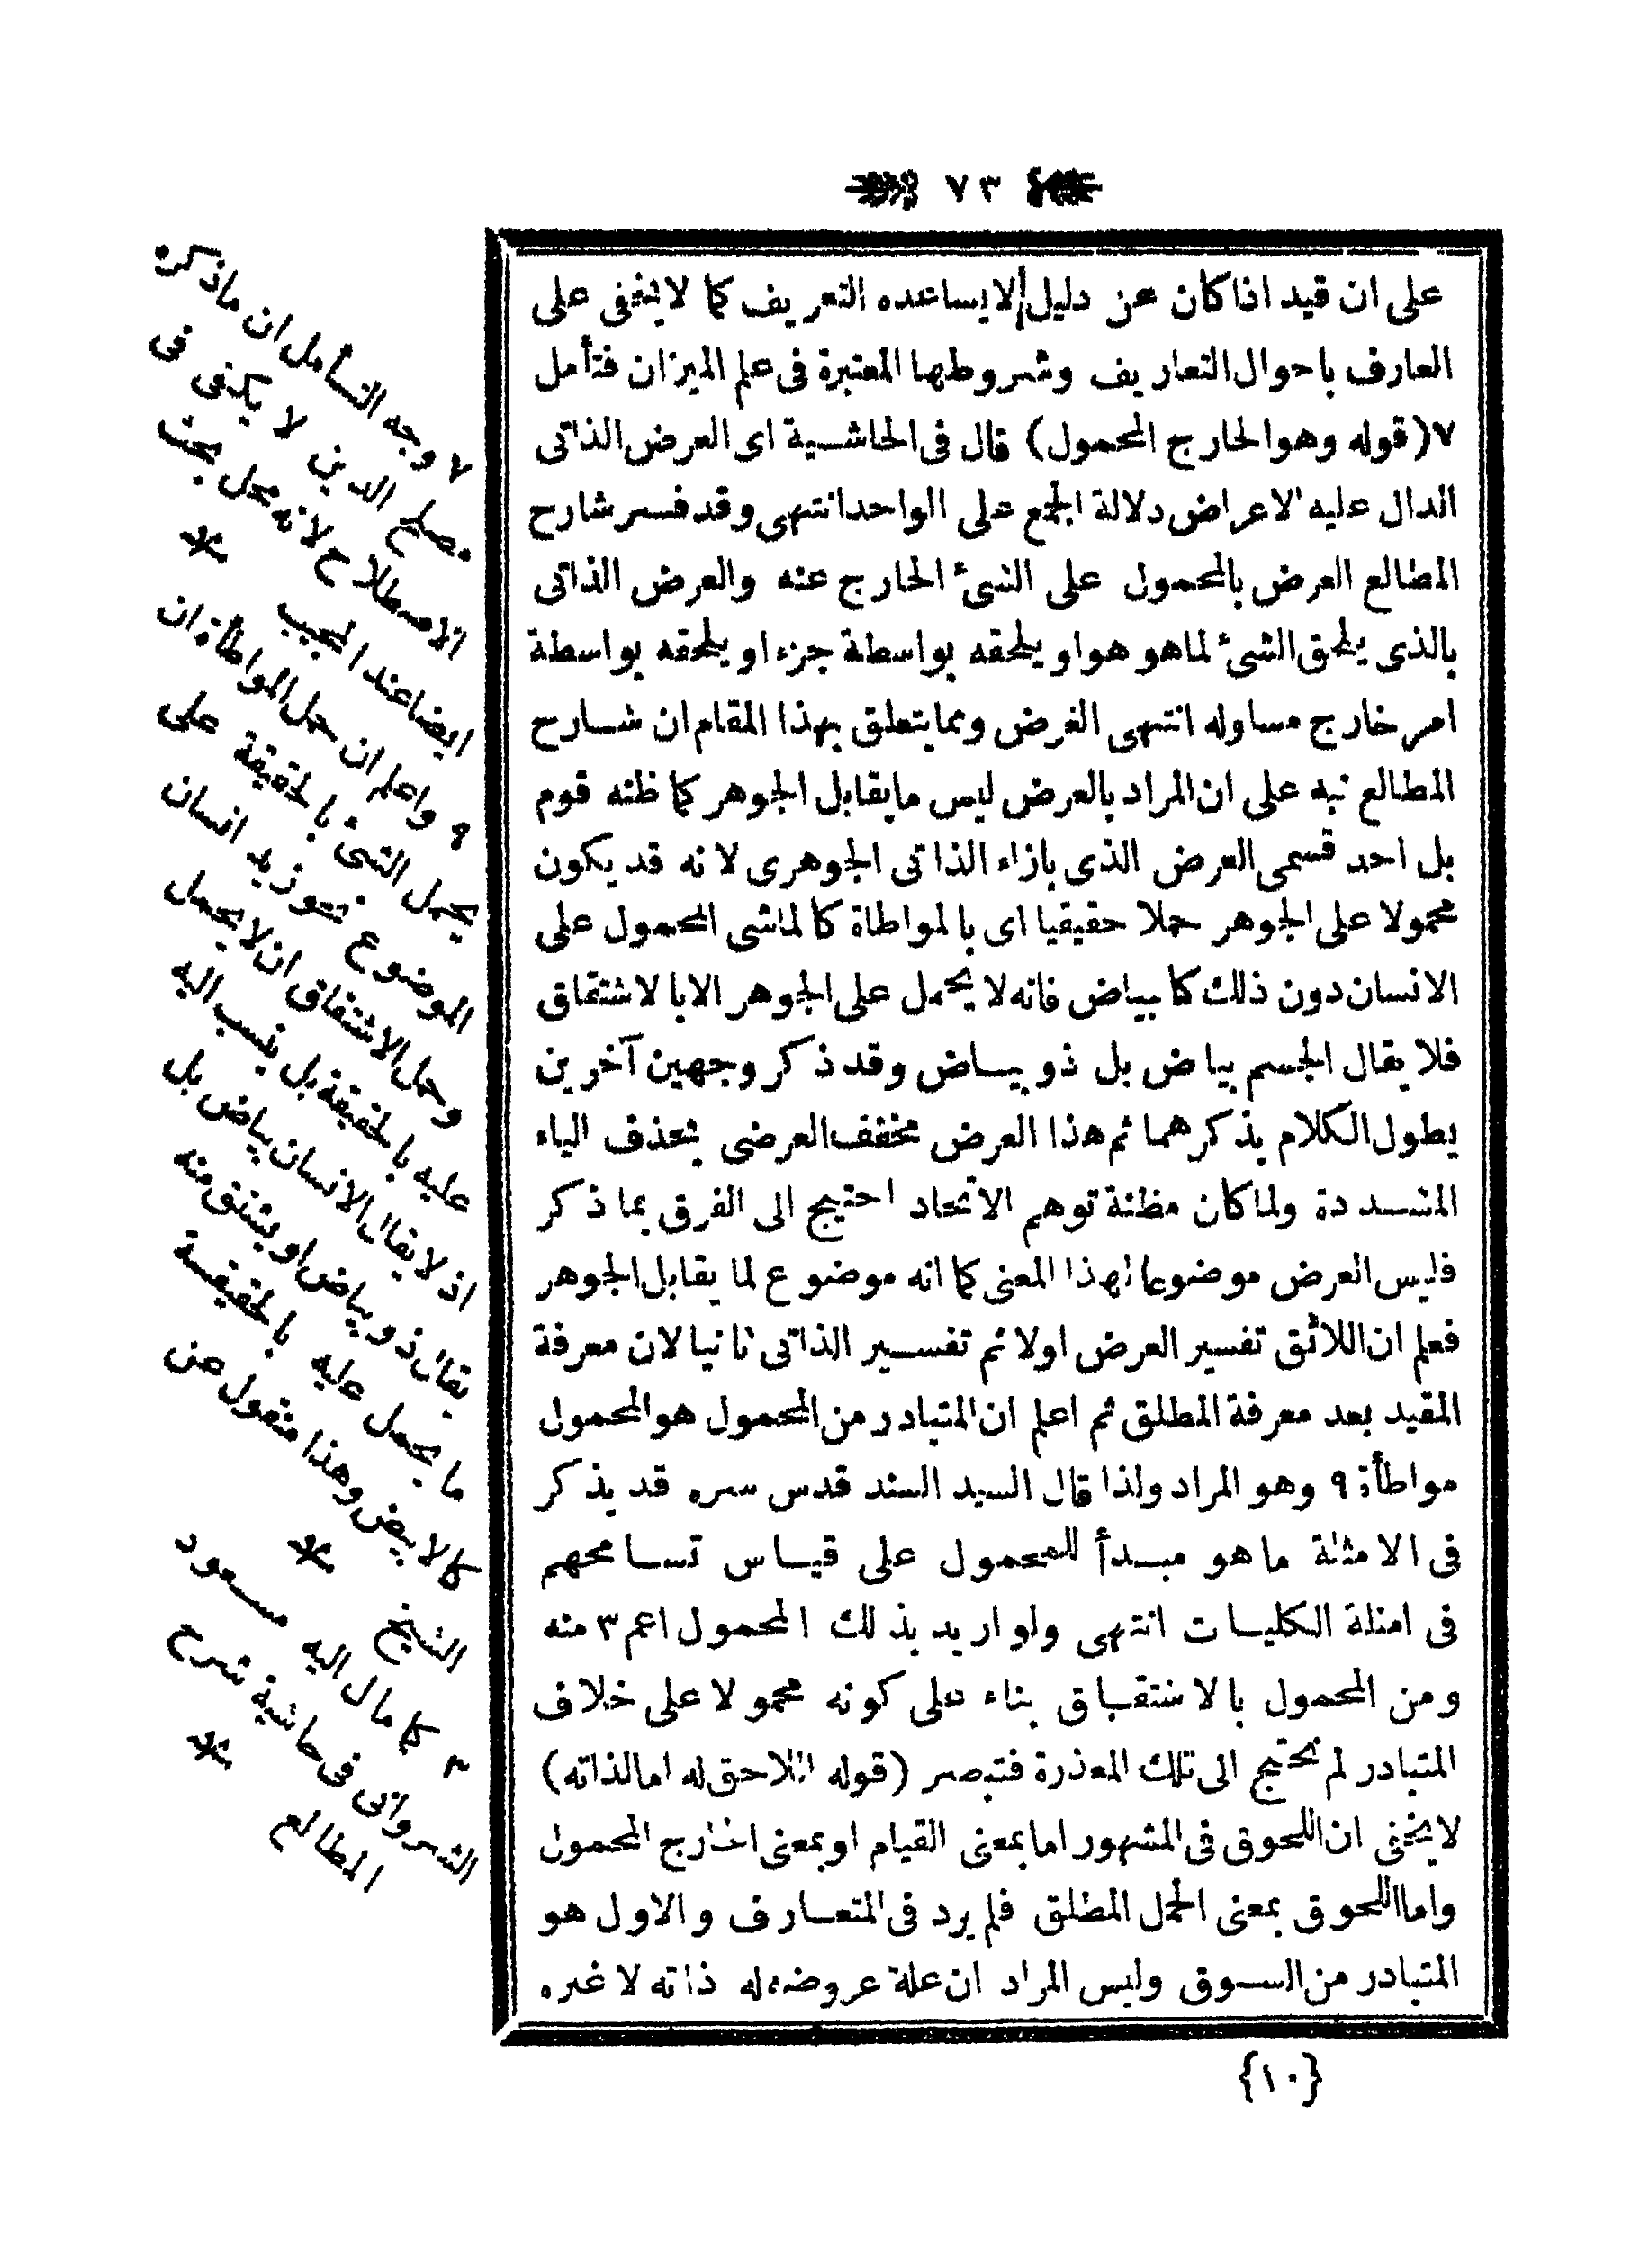 ٧٣
على ان قيد اذا كان عن دليل لا يساعده التعريف كما لا يخفى على
العارف باحوال التعاريف وشروطها المعتبرة فى علم الميزان فتأمل
٧ (قوله وهو الخارج المحمول) قال فى الحاشية اى العرض الذاتى
الدال عليه الاعراض دلالة الجمع على الواحد انتهى وقد فسر شارح
المطالع العرض بالمحمول على الشئ الخارج عنه والعرض الذاتى
بالذى يلحق الشئ لما هو هو او يلحقه بواسطة جزء او يلحقه بواسطة
امر خارج مساو له انتهى الغرض ومما يتعلق بهذا المقام ان شارح
المطالع نبه على ان المراد بالعرض ليس ما يقابل الجوهر كما ظنه قوم
بل احد قسمى العرض الذى بازاء الذاتى الجوهرى لانه قد يكون
محمولا على الجوهر حملا حقيقيا اى بالمواطاة كالماشى المحمول على
الانسان دون ذلك كالبياض فانه لا يحمل على الجوهر الا بالاشتقاق
فلا يقال الجسم بياض بل ذو بياض وقد ذكر وجهين آخرين
يطول الكلام بذكرهما ثم هذا العرض مخفف العرضى بحذف الياء
المشددة ولما كان مظنة توهم الاتحاد احتيج الى الفرق بما ذكر
فليس العرض موضوعا لهذا المعنى كما انه موضوع لما يقابل الجوهر
فعلم ان اللائق تفسير العرض اولا ثم تفسير الذاتى ثانيا لان معرفة
المقيد بعد معرفة المطلق ثم اعلم ان المتبادر من المحمول هو المحمول
مواطأة ٩ وهو المراد ولذا قال السيد السند قدس سره قد يذكر
فى الامثلة ما هو مبدأ للمحمول على قياس تسامحهم
فى امثلة الكليات انتهى ولو اريد بذلك المحمول اعم ٣ منه
ومن المحمول بالاشتقاق بناء على كونه محمولا على خلاف
المتبادر لم يحتج الى تلك المعذرة فتبصر (قوله اللاحق له اما لذاته)
لا يخفى ان اللحوق فى المشهور اما بمعنى القيام او بمعنى الخارج المحمول
واما اللحوق بمعنى الحمل المطلق فلم يرد فى المتعارف والاول هو
المتبادر من السوق وليس المراد ان علة عروضه له ذاته لا غيره
{١٠}
٧ وجه التأمل ان ما ذكره
مصلح الدين لا يكفى فى
الاصطلاح لانه محل بحث
ايضا عند المجيب
٩ واعلم ان حمل المواطأة ان
يحمل الشئ بالحقيقة على
الموضوع نحو زيد انسان
وحمل الاشتقاق ان لا يحمل
عليه بالحقيقة بل ينسب اليه
اذ لا يقال الانسان بياض بل
يقال ذو بياض او يشتق منه
ما يحمل عليه بالحقيقة
كالابيض وهذا منقول عن
الشيخ
٣ كما مال اليه مسعود
الشروانى فى حاشية شرح
المطالع